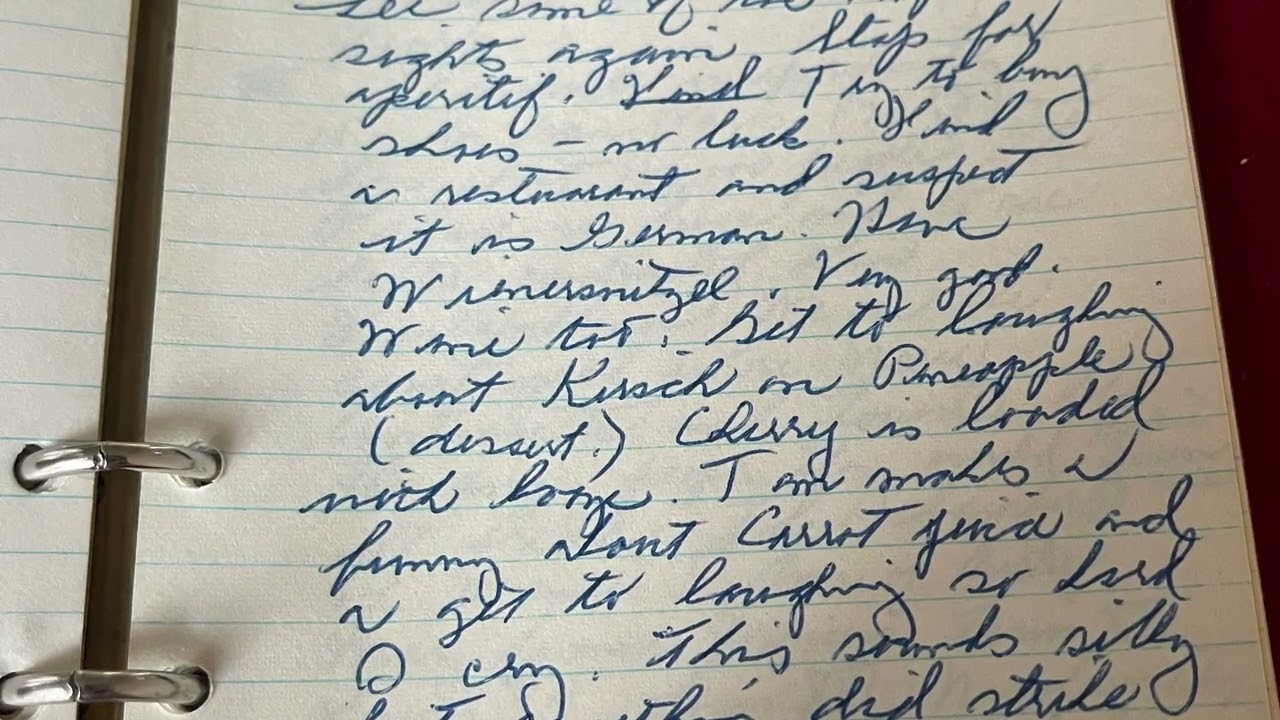 see some of the
sights again. Stop for
aperitif. Find Try to buy
shoes - no luck. Find
a restaurant and suspect
it is German. Have
Wienersnitzel. Very good.
Wine too. Get to laughing
about Kirsch on Pineapple
(dessert.) Cherry is loaded
with booze. Tom makes a
funny about Carrot juice and
a get to laughing so hard
I cry. This sounds silly
did strike